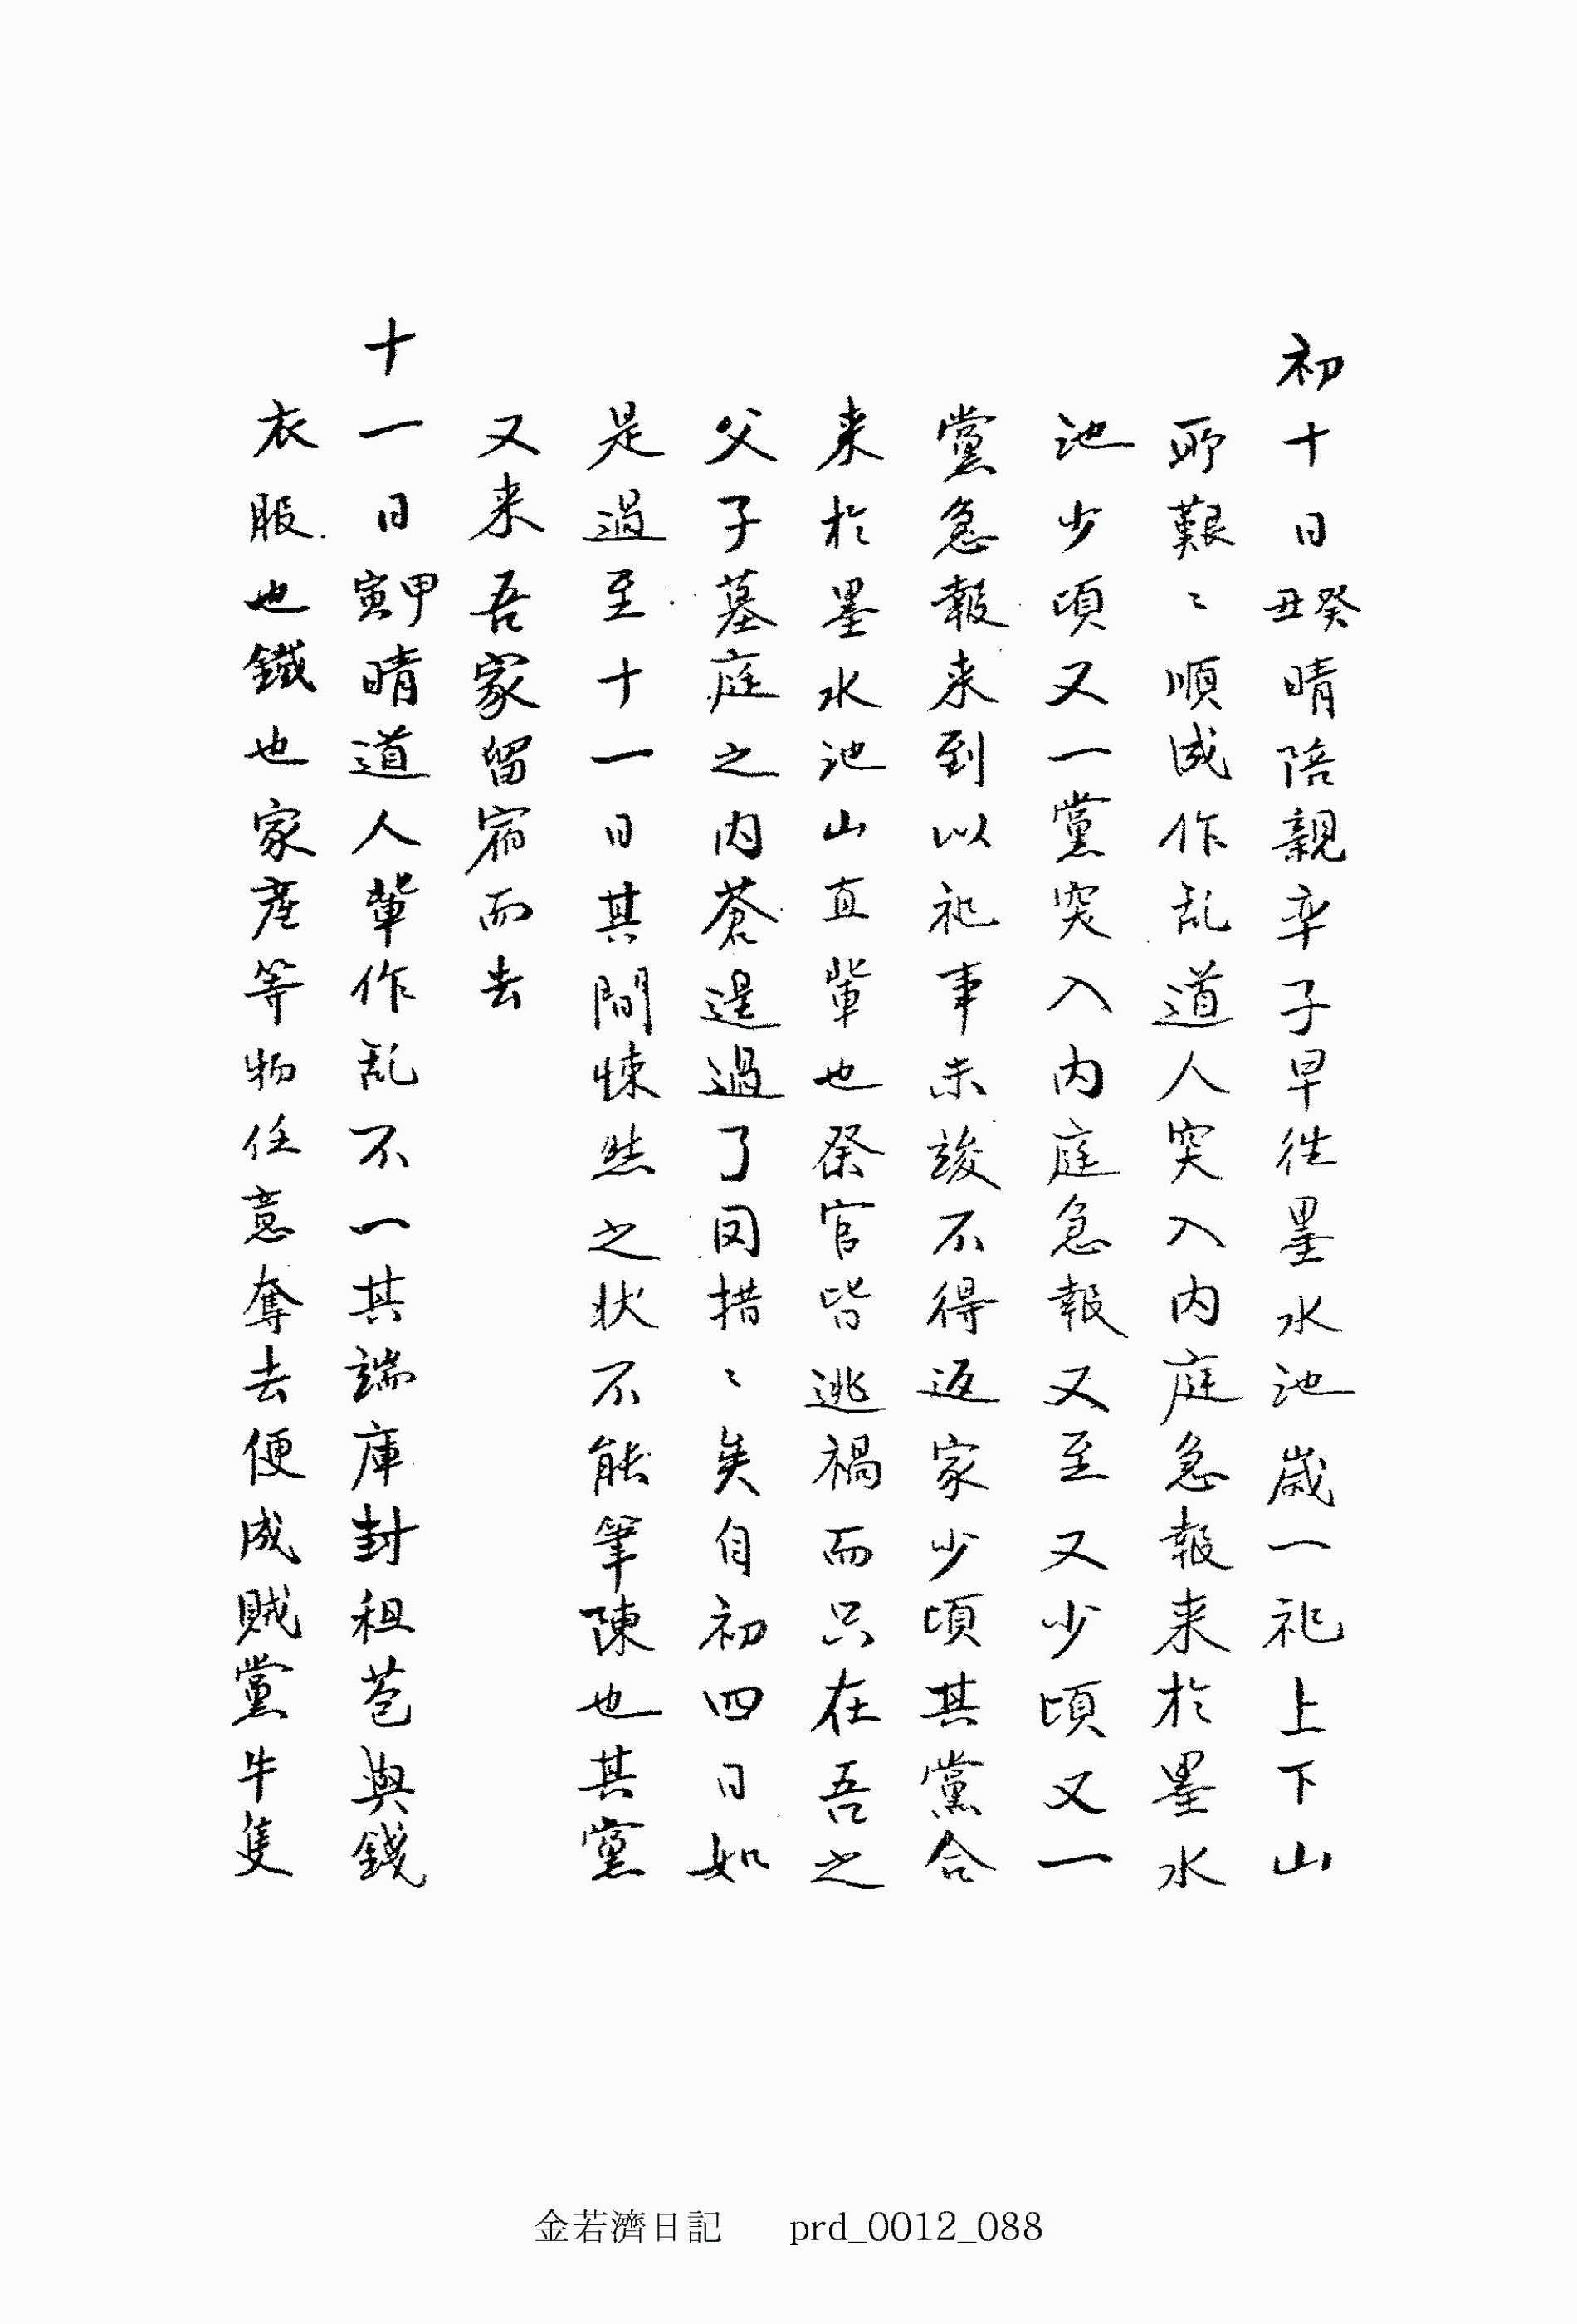 初十日癸丑晴陪親率子早徃墨水池歲一祀上下山
所艱〻順成作乱道人突入内庭急報来於墨水
池少頃又一黨突入内庭急報又至又少頃又一
黨急報来到以祀事未竣不得返家少頃其黨合
来於墨水池山直輩也祭官皆逃禍而只在吾之
父子墓庭之内蒼遑過了罔措〻矣自初四日如
是過至十一日其間悚然之状不能筆陳也其黨
又来吾家留宿而去
十一日甲寅晴道人輩作乱不一其端庫封租苞與錢
衣服也鐵也家産等物任意奪去便成賊黨牛隻
金若濟日記 prd_0012_088